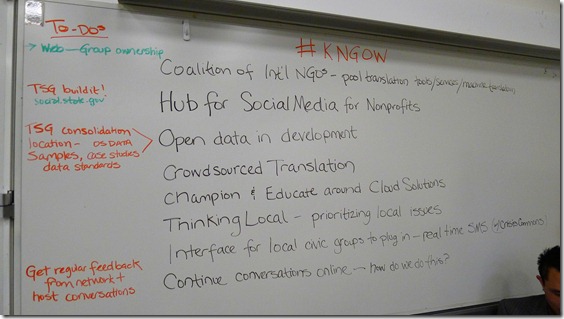 To-Dos
→ Web — Group ownership
# KNGOW
Coalition of Int'l NGOs - pool translation tools/services/machine translation
TSG build it!
social.state.gov
Hub for Social Media for Nonprofits
TSG consolidation
location - OS DATA
Samples, case studies
data standards
Open data in development
Crowdsourced Translation
Champion & Educate around Cloud Solutions
Thinking Local - prioritizing local issues
Interface for local civic groups to plug in - real time SMS (Creative Commons)
Get regular feedback
from network +
host conversations
Continue conversations online → how do we do this?